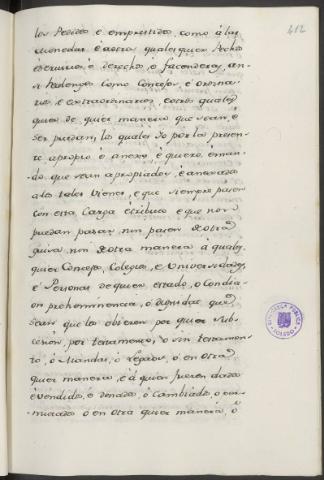 412
los Pedidos é emprestidos, como á las
monedas é á otros quales quier Pechos
é servicios é derechos, é facenderas, an-
si Realengos como Concejos, é ordina-
rios é extraordinarios, é otros quales-
quier de quier manera que sean, é
ser puedan, los quales Yo por la presen-
te apropio é anexo, é quiero, é man-
do, que sean apropiados, é anexados
á los tales vienes, é que siempre pasen
con esta Carga é tributo é que non
puedan pasar, nin pasen de otra
guisa, nin de otra manera á quales-
quier Concejos, Colegios, é Universidades,
é Personas de quier estado, ó Condici-
on prehominencia, ó dignidad que
sean, que los obieren por quier sub-
cesion, por testamento, ó sin testamen-
to, ó Mandas, ó legados, ó en otra
quier manera, é á quien fueren dados
é vendidos, ó donados, ó Cambiados, ó per-
mutados ó en otra quier manera, ó
BIBLIOTECA PUBLICA
TOLEDO